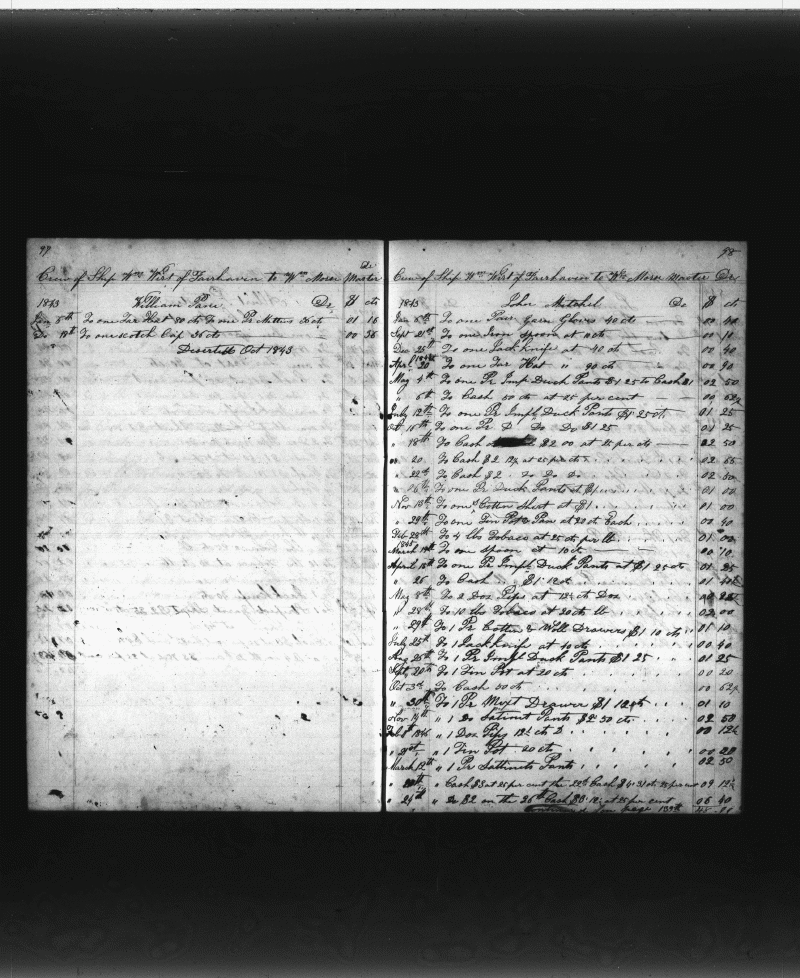 97
Dr
Crew of Ship Wm Wirt of Fairhaven to Wm Morse Master
1843 William Dr $ cts
Jan 5th To one Tar Hat 80 cts To one Pr Mittens 36 cts 01 16
Do 19th To one scotch Cap 56 cts 00 56
Deserted Oct 1843
98
Crew of Ship Wm Wirt of Fairhaven to Wm Morse Master Dr
1843 John Mitchel Dr $ cts
Jan 5th To one Pair Yarn Gloves 40 cts 00 40
Sept 21st To one Iron Spoon at 11 cts 00 11
Dec 25th To one Jack knife at 40 cts 00 40
Apr 20 1844 To one Tar Hat " 90 cts 00 90
May 4th To one Pr Impl Duck Pants $1 25 to Cash $1 02 50
" 6th To Cash 50 cts at 25 per cent 00 62½
July 12th To one Pr Impl Duck Pants $1 25 cts 01 25
Oct 16th To one Pr D Do Do $1 25 01 25
" 18th To Cash $2 00 at 25 per cts 02 50
" 20 To Cash $2 12½ at 25 per cts 02 65
" 22nd To Cash $2 To Do Do 02 50
" 26th To one Pr Duck Pants at $1 01 00
Nov 13th To one Cotton Shirt at $1 01 00
" 29th To one Tin Pot & Pan at 20 ct Each 00 40
Feb 28th To 4 lbs Tobaco at 25 cts per lb 01 00
1845
March 19th To one spoon at 10 ct 00 10
April 15th To one Pr Impl Duck Pants at $1 25 cts 01 25
" 26 To Cash $1 12 ct 01 40
May 8th To 2 Doz Pips at 12½ ct Doz 00 25
" 28th To 10 lbs Tobaco at 20 ct lb 02 00
" 29th To 1 Pr Cotton & Woll Drawers $1 10 cts 01 10
July 25th To 1 Jackknife at 40 cts 00 40
Aug 25th To 1 Pr Impl Duck Pants $1 25 01 25
Sept 20th To 1 Tin Pot at 20 cts 00 20
Oct 3rd To Cash 50 cts 00 62½
" 30th To 1 Pr Mixt Drawers $1 01 10
Nov 19th " 1 Do Satinet Pants $2 50 cts 02 50
Feb 1846 " 1 Doz Pips 12½ ct D 00 12½
" " 1 Tin Pot 20 cts 00 20
March 12th " 1 Pr Sattinets Pants 02 50
" " Cash $3 at 25 per cent the 22nd Cash $4 31 ct 25 per cent 09 12½
" 24th " Do $2 on the 26th Cash $3 12 at 25 per cent 06 40
Continued on page 139th